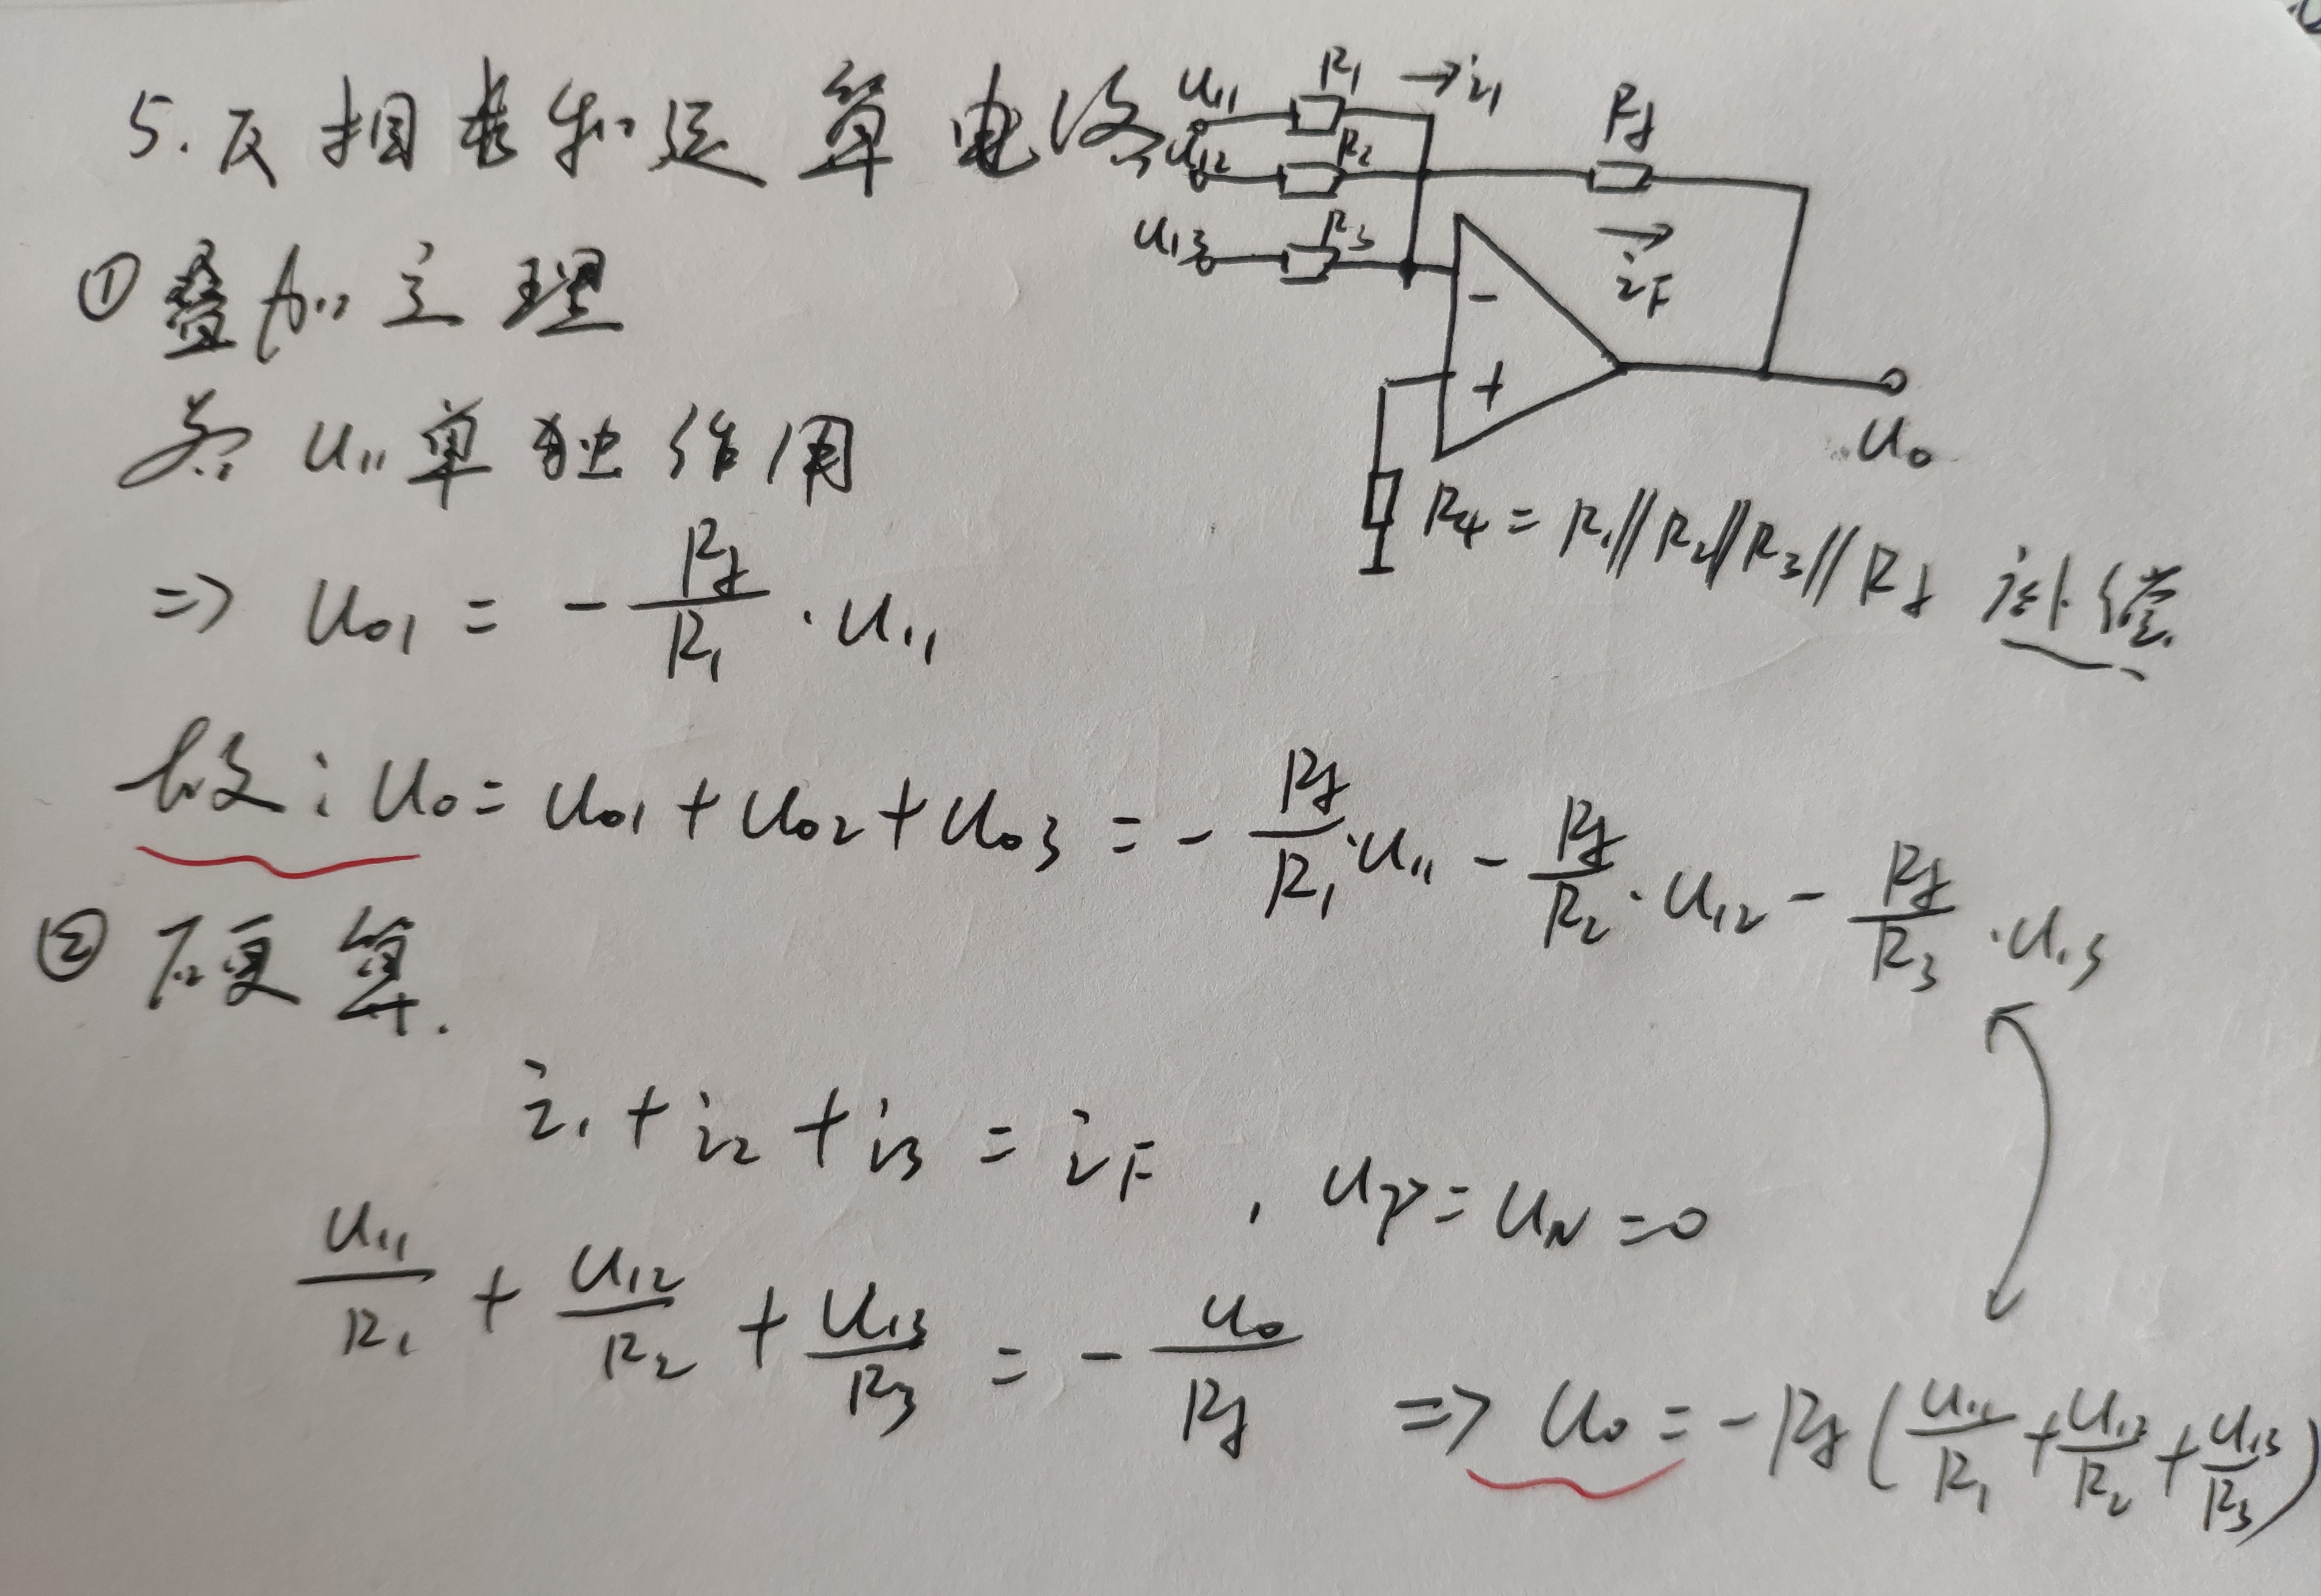 5. 反相求和运算电路
u₁₁ R₁ → i₁
u₁₂ R₂ Rf
u₁₃ R₃ → iF
-
+
u₀
R₄ = R₁//R₂//R₃//Rf 补偿
① 叠加定理
若 u₁₁ 单独作用
=> u₀₁ = - Rf/R₁ · u₁₁
故: u₀ = u₀₁ + u₀₂ + u₀₃ = - Rf/R₁ · u₁₁ - Rf/R₂ · u₁₂ - Rf/R₃ · u₁₃
② 硬算.
i₁ + i₂ + i₃ = iF , uP = uN = 0
u₁₁/R₁ + u₁₂/R₂ + u₁₃/R₃ = - u₀/Rf => u₀ = - Rf ( u₁₁/R₁ + u₁₂/R₂ + u₁₃/R₃ )